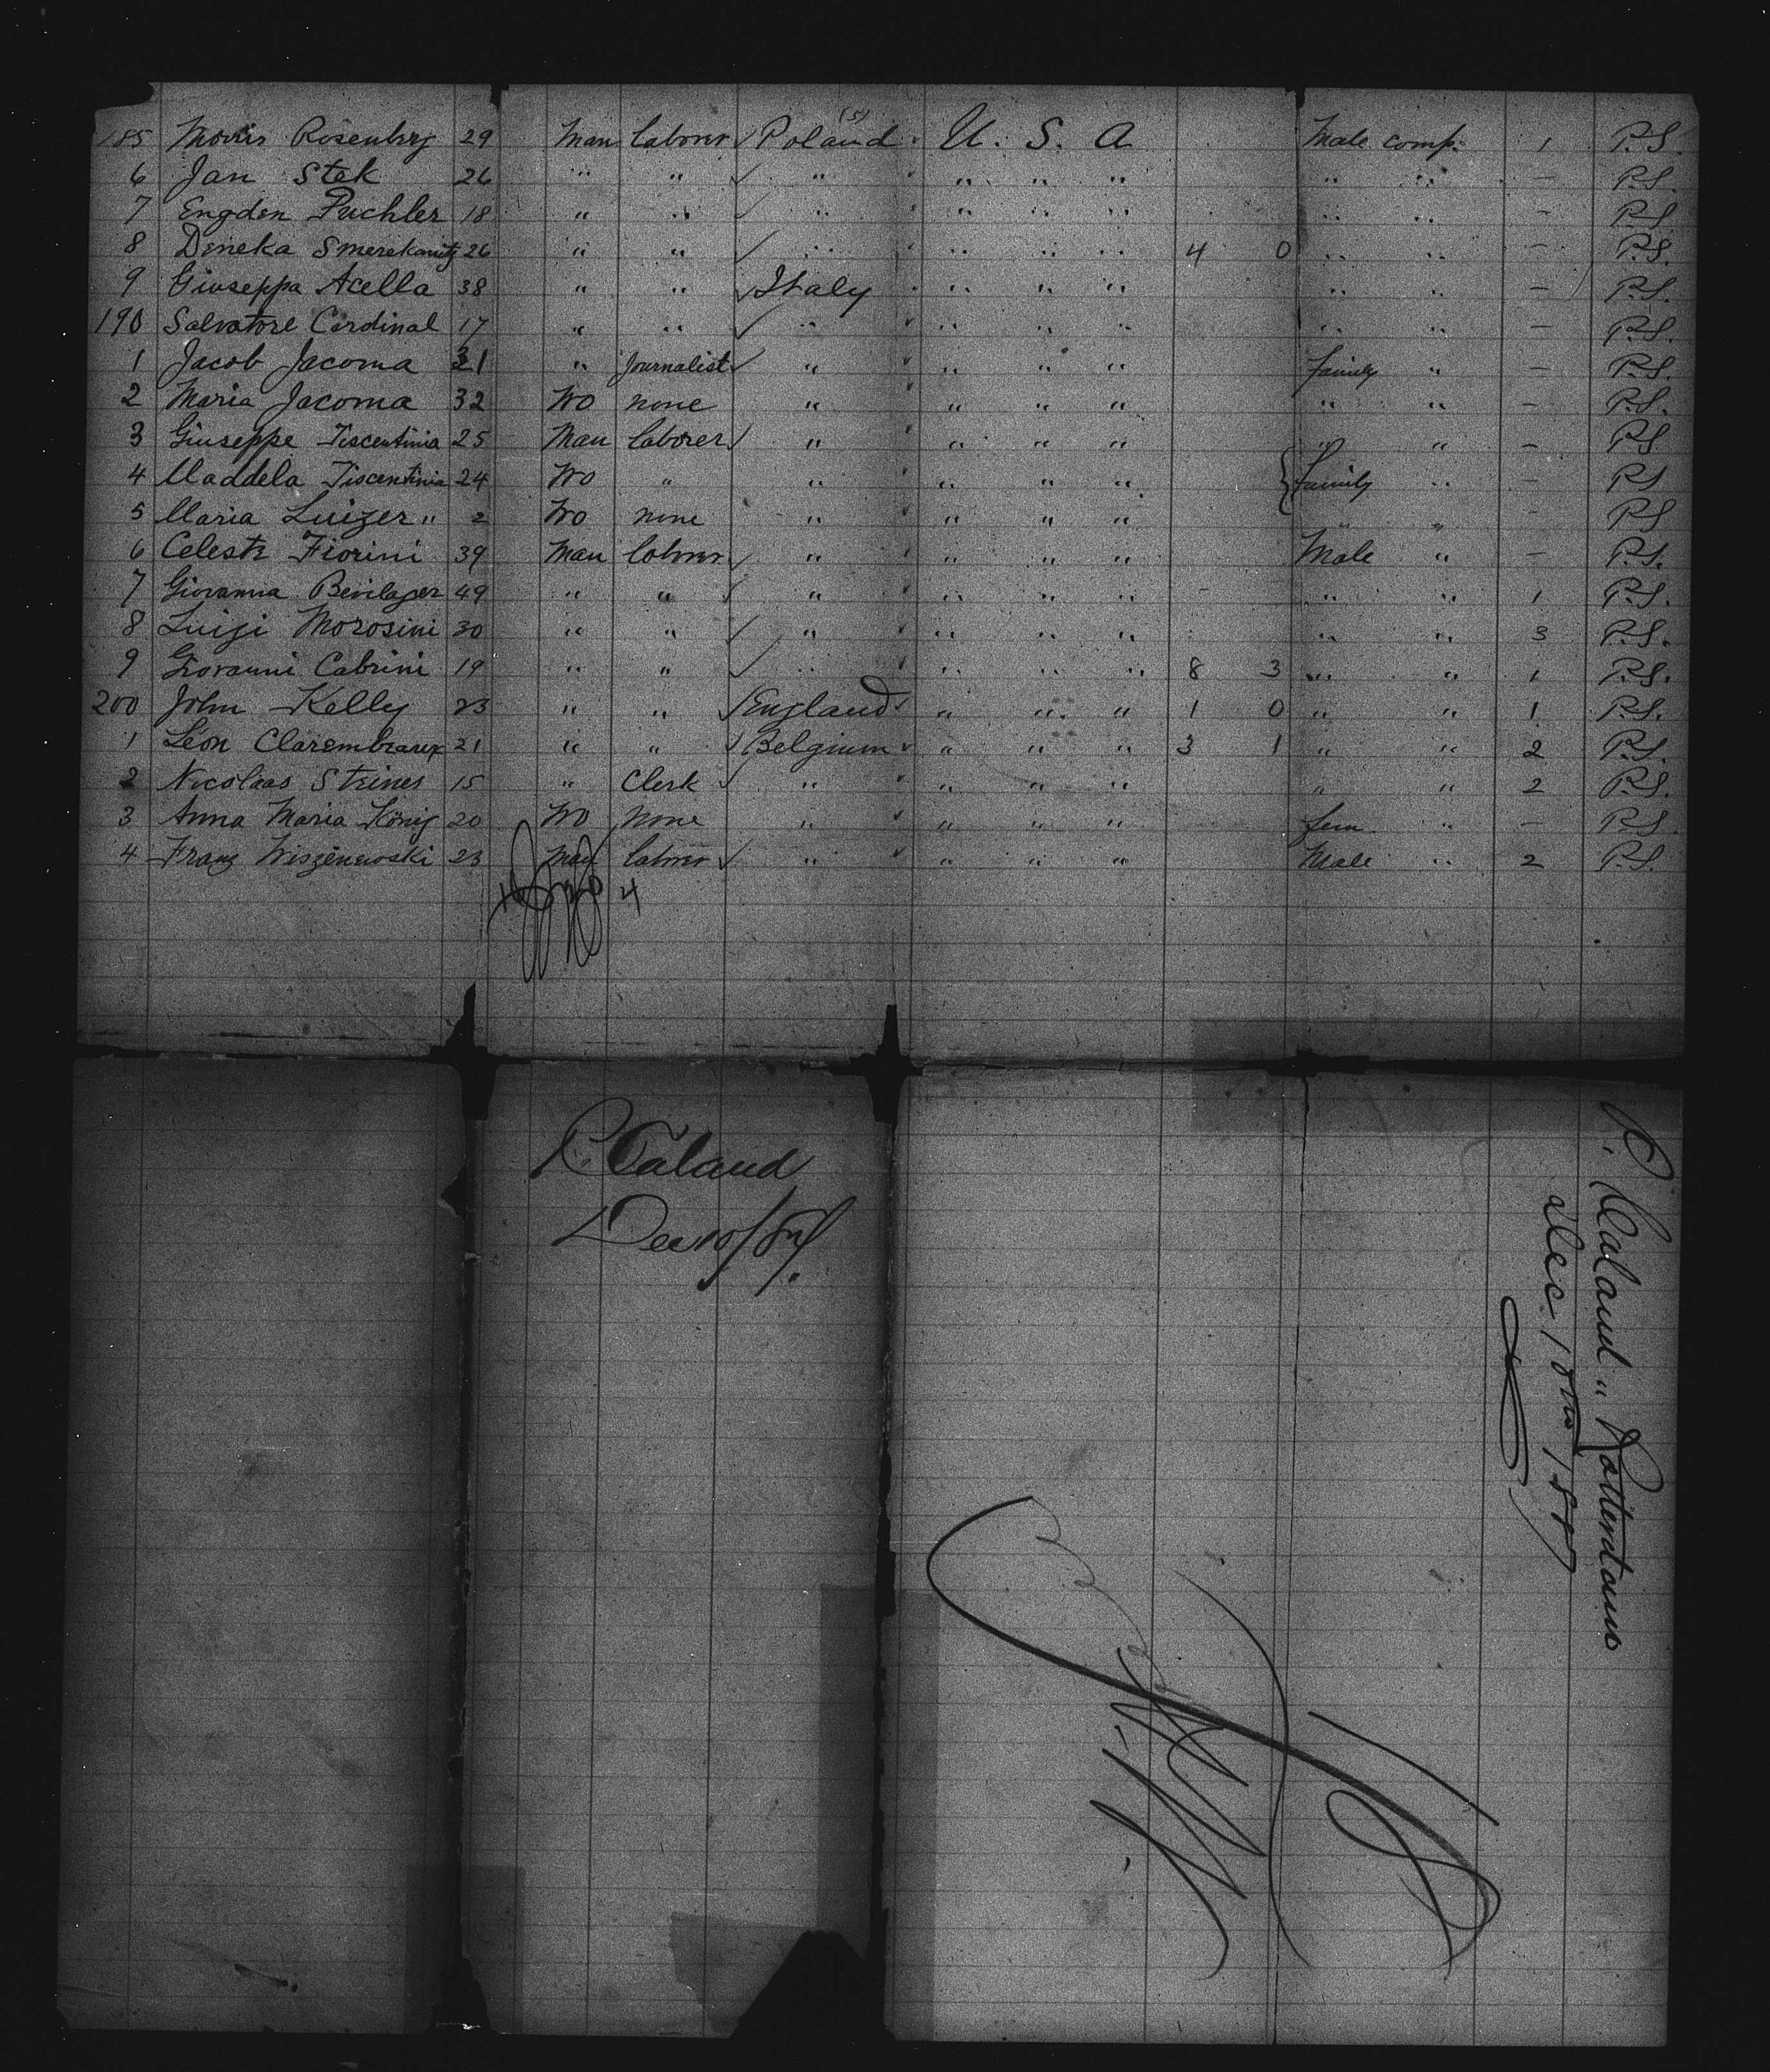 185 Morris Rosenbrg 29 Man laborer Poland (5) U. S. A Male comp. 1 P.S.
6 Jan Stek 26 " " " " " " " " — P.S.
7 Engden Puchler 18 " " " " " " " " — P.S.
8 Deneka 26 " " " " " " 4 0 " " — P.S.
9 Giuseppa Acella 38 " " Italy " " " " " — P.S.
190 Salvatore Cardinal 17 " " " " " " " " — P.S.
1 Jacob Jacoma 31 " Journalist " " " " family " — P.S.
2 Maria Jacoma 32 Wo none " " " " " " — P.S.
3 Giuseppe Tiscentinia 25 Man laborer " " " " " " — P.S
4 Maddela Tiscentinia 24 Wo " " " " " family " — P.S
5 Maria Luizer " 2 Wo none " " " " " " — P.S
6 Celeste Fiorini 39 Man laborer " " " " Male " — P.S.
7 Giovanna Bevilaper 49 " " " " " " - " " 1 P.S.
8 Luigi Morosini 30 " " " " " " " " 3 P.S.
9 Giovanni Cabrini 19 " " " " " " 8 3 " " 1 P.S.
200 John Kelly 23 " " England " " " 1 0 " " 1 P.S.
1 Léon Clarembeaux 21 " " Belgium " " " 3 1 " " 2 P.S.
2 Nicolaas Steines 15 " Clerk " " " " " " 2 P.S.
3 Anna Maria König 20 Wo None " " " " fem " — P.S.
4 Franz Wiszenewski 23 Man laborer " " " " Male " 2 P.S.
4
P. Caland
Dec 10/87.
P. Caland " Rotterdam
Dec. 10th 1887